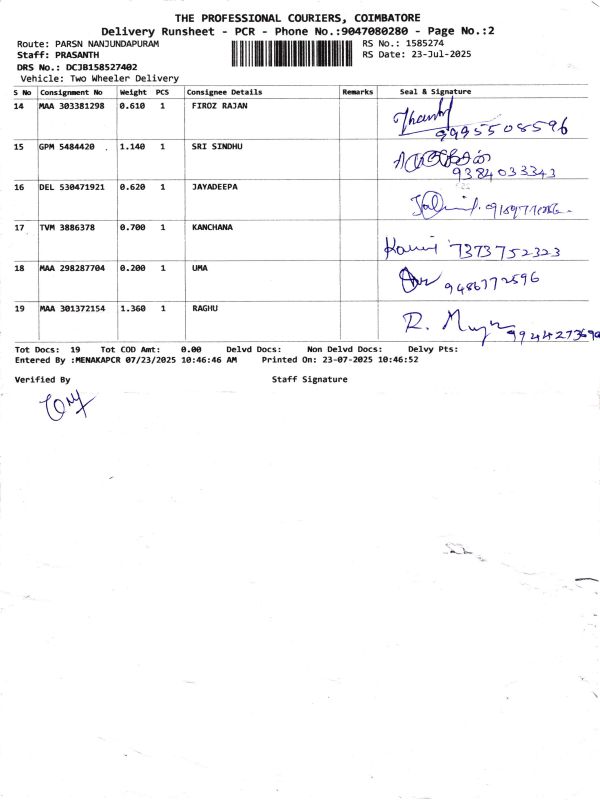 THE PROFESSIONAL COURIERS, COIMBATORE
Delivery Runsheet - PCR - Phone No.:9047080280 - Page No.:2
Route: PARSN NANJUNDAPURAM RS No.: 1585274
Staff: PRASANTH RS Date: 23-Jul-2025
DRS No.: DCJB158527402
Vehicle: Two Wheeler Delivery
S No Consignment No Weight PCS Consignee Details Remarks Seal & Signature
14 MAA 303381298 0.610 1 FIROZ RAJAN
9995508596
15 GPM 5484420 1.140 1 SRI SINDHU
9384033343
16 DEL 530471921 0.620 1 JAYADEEPA
17 TVM 3886378 0.700 1 KANCHANA
7373752323
18 MAA 298287704 0.200 1 UMA
9486772596
19 MAA 301372154 1.360 1 RAGHU
R.
Tot Docs: 19 Tot COD Amt: 0.00 Delvd Docs: Non Delvd Docs: Delvy Pts:
Entered By :MENAKAPCR 07/23/2025 10:46:46 AM Printed On: 23-07-2025 10:46:52
Verified By Staff Signature